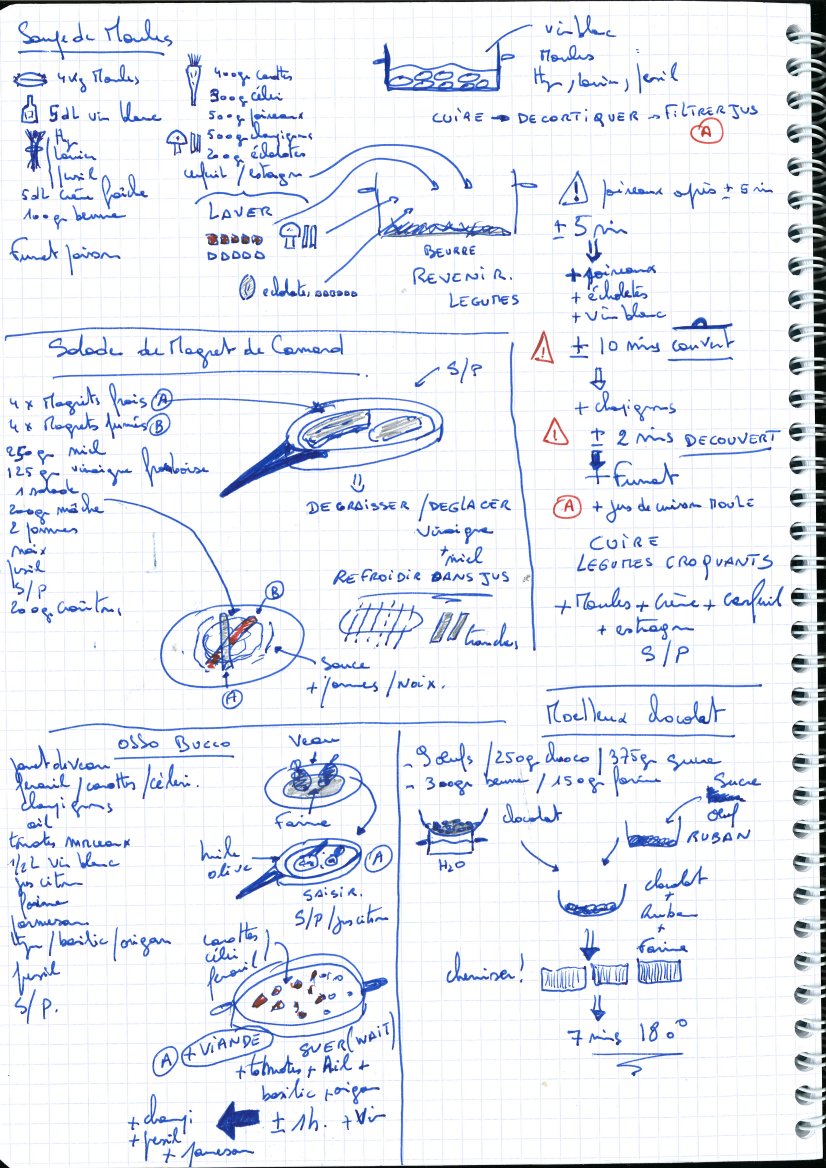 Soupe de Moules
4 Kg Moules
5 dL vin blanc
Thym
Laurier
Persil
5 dL crème fraîche
100 gr beurre
Fumet poisson
400 gr carottes
300 gr céleri
500 gr poireaux
500 gr champignons
200 gr échalotes
cerfeuil / estragon
LAVER
échalotes
vin blanc
Moules
Thym, laurier, persil
CUIRE → DECORTIQUER → FILTRER JUS
A
BEURRE
REVENIR.
LEGUMES
! poireaux après ± 5 min
± 5 min
+ poireaux
+ échalotes
+ vin blanc
! ± 10 mins couvert
+ champignons
! ± 2 mins DECOUVERT
+ Fumet
A + jus de cuisson MOULE
CUIRE
LEGUMES CROQUANTS
+ Moules + Crème + Cerfeuil
+ estragon
S/P
Salade de Magret de Canard
4 x Magrets frais A
4 x Magrets fumés B
250 gr miel
125 gr vinaigre framboise
1 salade
200 gr mâche
2 pommes
noix
persil
S/P
200 gr croûtons
S/P
DEGRAISSER / DEGLACER
Vinaigre
+ miel
REFROIDIR DANS JUS
tranches
B
A
Sauce
+ pommes / Noix.
OSSO BUCCO
jarret de veau
fenouil / carottes / céleri.
champignons
ail
tomates morceaux
1/2 L vin blanc
jus citron
farine
parmesan
Thym / basilic / origan
persil
S/P.
Veau
Farine
huile
olive
A
SAISIR.
S/P / jus citron
carottes
céleri
fenouil
SUER (WAIT)
A + VIANDE
+ tomates + Ail +
basilic + origan
± 1h. + Vin
+ champi
+ persil
+ parmesan
Moelleux chocolat
- 9 oeufs / 250 gr choco / 375 gr sucre
- 300 gr beurre / 150 gr farine
chocolat
H2O
Sucre
Oeuf
RUBAN
chocolat
+
Ruban
+
Farine
chemiser!
7 mins 180°